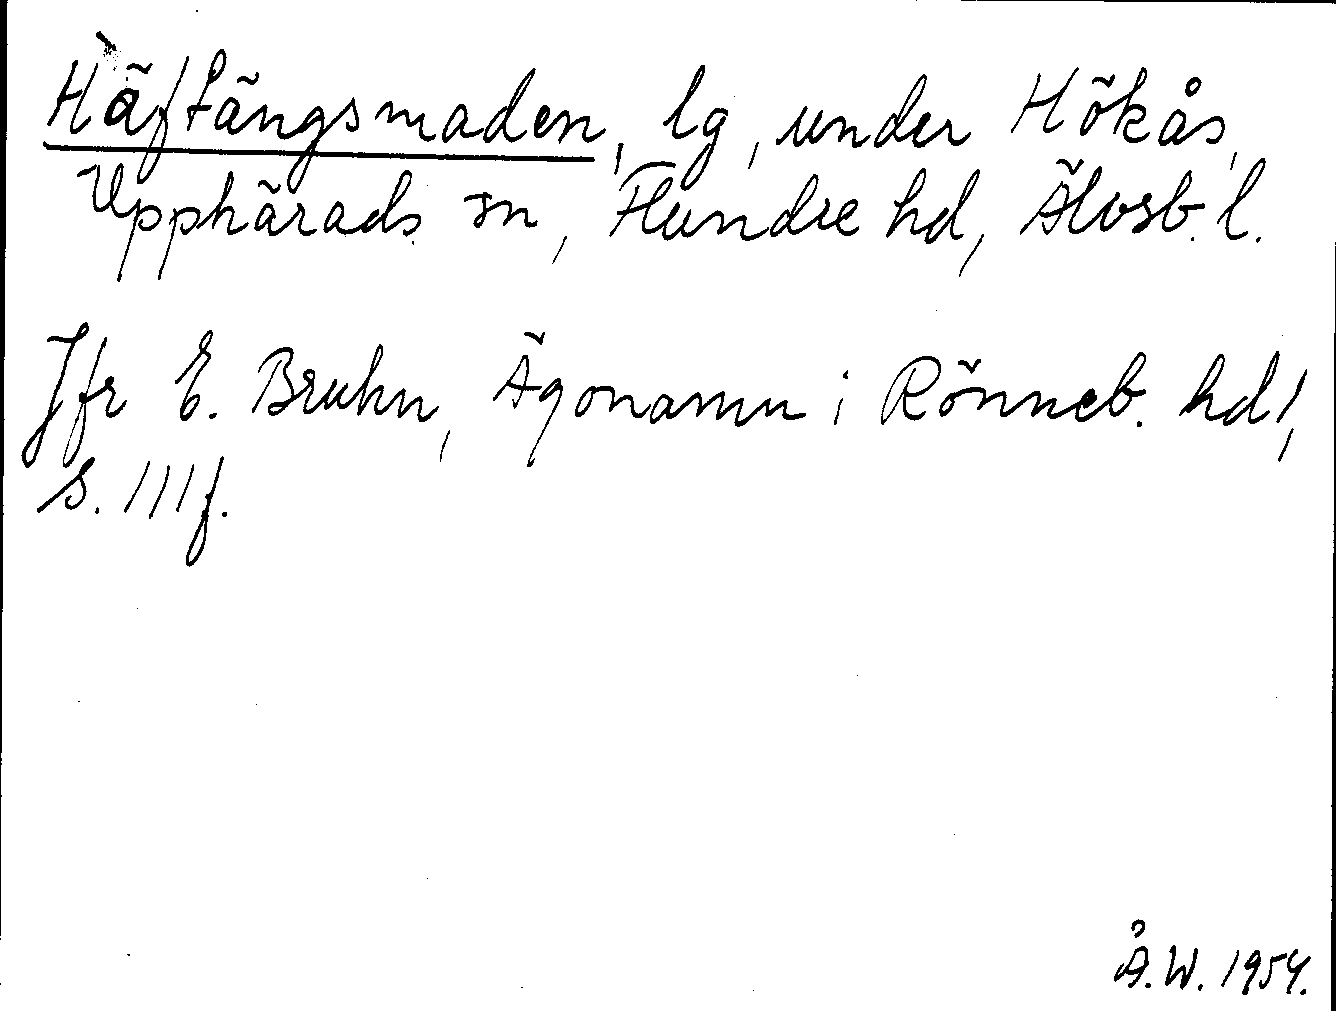 Häftängsmaden, lg, under Hökås,
Upphärads sn, Flundre hd, Älvsb. l.
Jfr E. Bruhn, Ägonamn i Rönneb. hd 1,
s. 111 f.
Å.W. 1954.